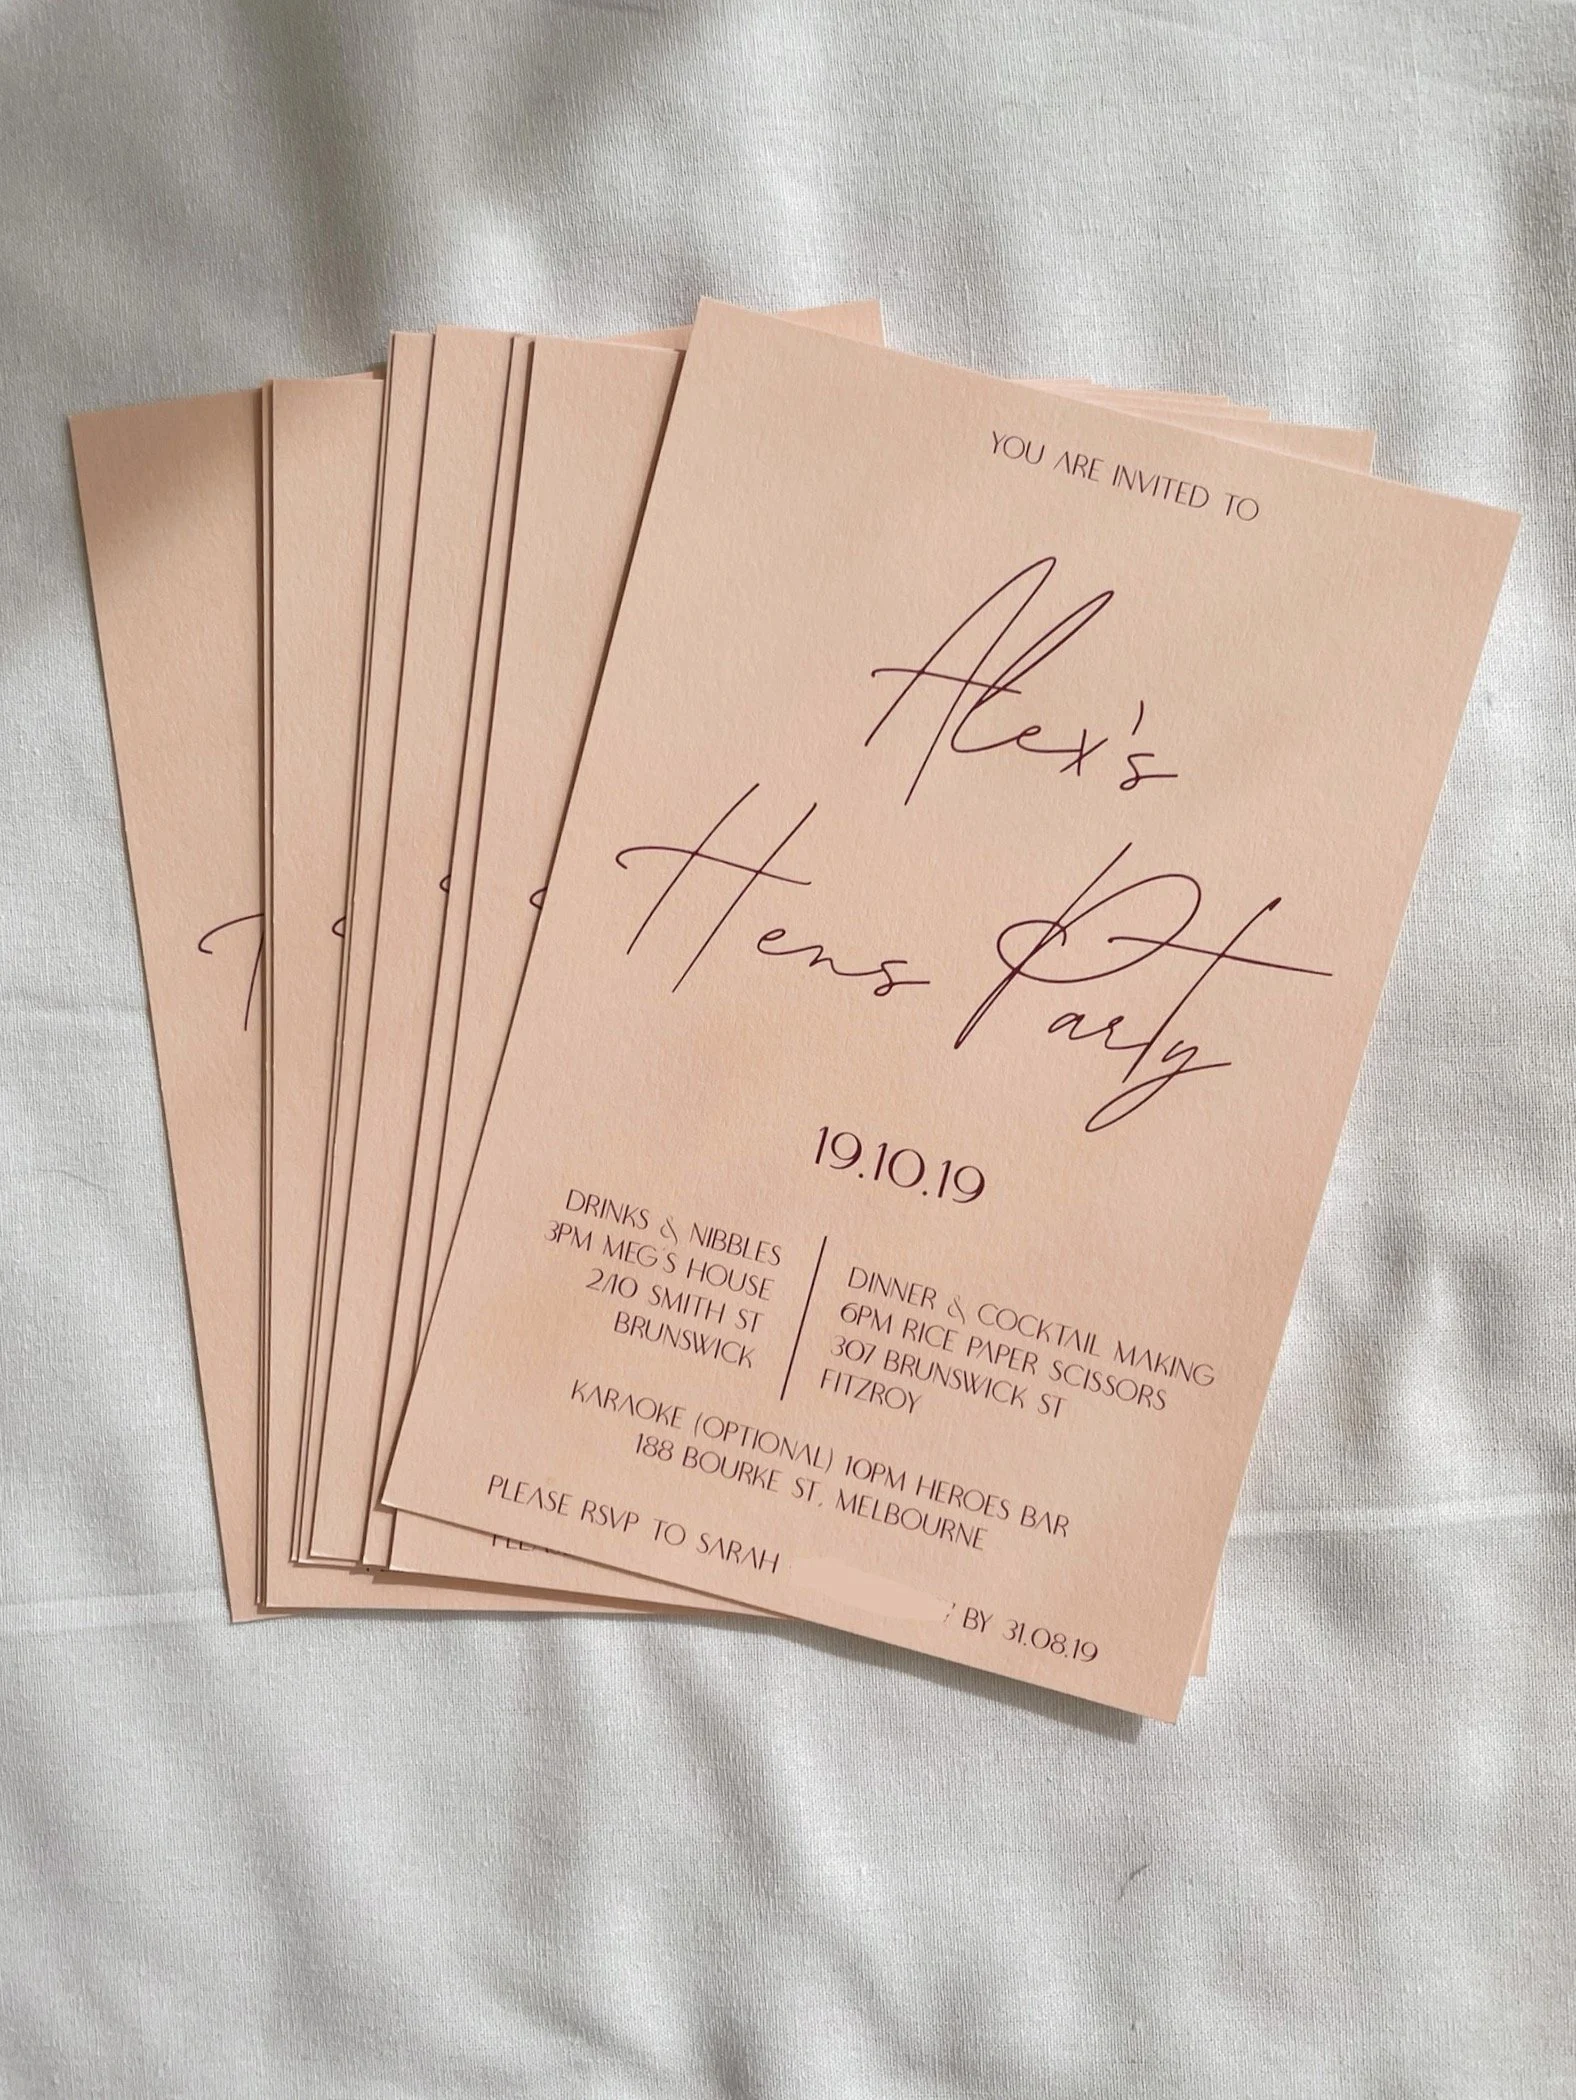 YOU ARE INVITED TO
Alex's
Hens Party
19.10.19
DRINKS & NIBBLES
3PM MEG'S HOUSE
2/10 SMITH ST
BRUNSWICK
DINNER & COCKTAIL MAKING
6PM RICE PAPER SCISSORS
307 BRUNSWICK ST
FITZROY
KARAOKE (OPTIONAL) 10PM HEROES BAR
188 BOURKE ST, MELBOURNE
PLEASE RSVP TO SARAH BY 31.08.19